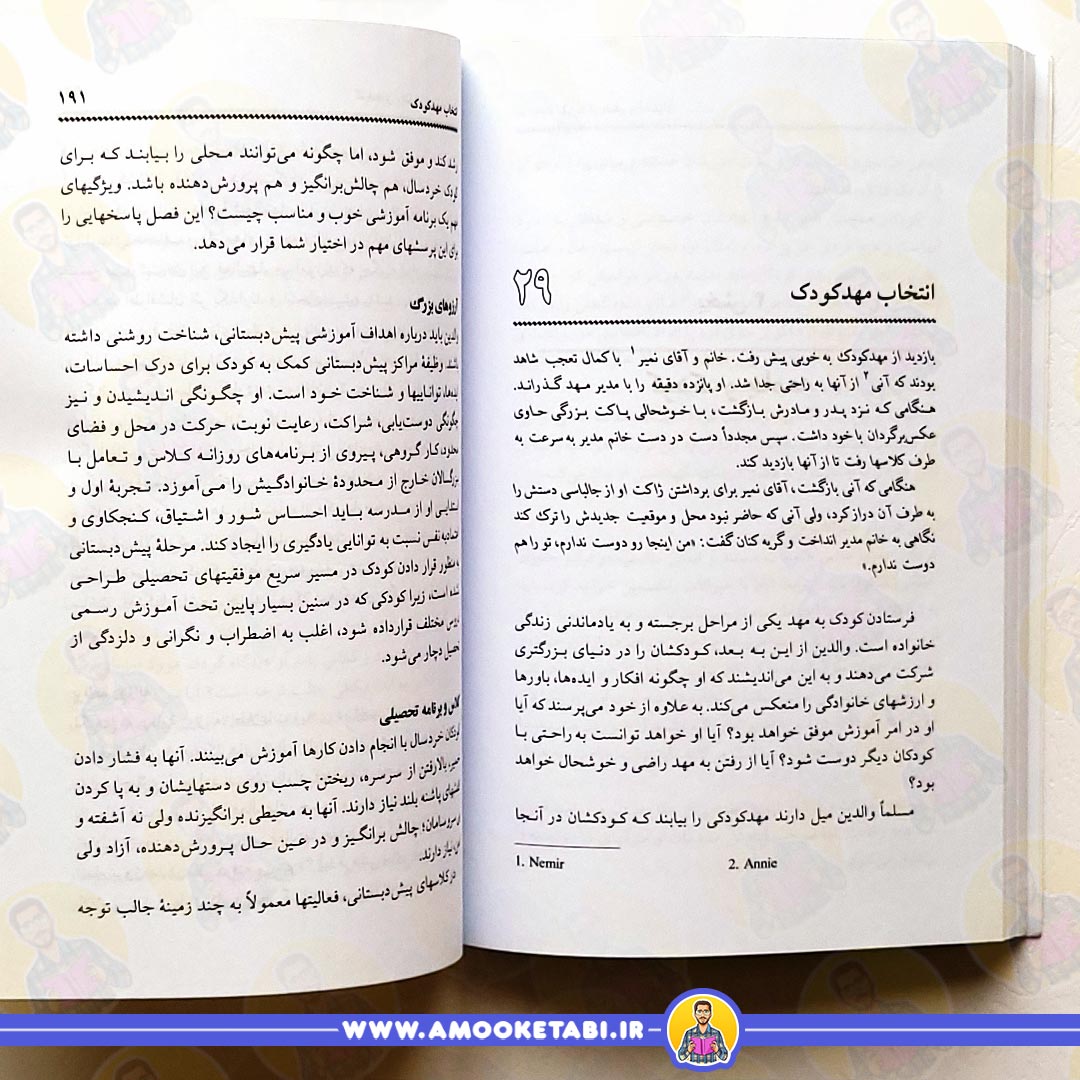 انتخاب مهدکودک ۲۹
بازدید از مهدکودک به خوبی پیش رفت. خانم و آقای نمیر۱ با کمال تعجب شاهد
بودند که آنی۲ از آنها به راحتی جدا شد. او پانزده دقیقه را با مدیر مهد گذراند.
هنگامی که نزد پدر و مادرش بازگشت، با خوشحالی پاکت بزرگی حاوی
عکس‌برگردان با خود داشت. سپس مجدداً دست در دست خانم مدیر به سرعت به
طرف کلاسها رفت تا از آنها بازدید کند.
هنگامی که آنی بازگشت، آقای نمیر برای برداشتن ژاکت او از جالباسی دستش را
به طرف آن دراز کرد، ولی آنی که حاضر نبود محل و موقعیت جدیدش را ترک کند
نگاهی به خانم مدیر انداخت و گریه کنان گفت: «من اینجا رو دوست ندارم، تو را هم
دوست ندارم.»
فرستادن کودک به مهد یکی از مراحل برجسته و به یادماندنی زندگی
خانواده است. والدین از این به بعد، کودکشان را در دنیای بزرگتری
شرکت می‌دهند و به این می‌اندیشند که او چگونه افکار و ایده‌ها، باورها
و ارزشهای خانوادگی را منعکس می‌کند. به علاوه از خود می‌پرسند که آیا
او در امر آموزش موفق خواهد بود؟ آیا او خواهد توانست به راحتی با
کودکان دیگر دوست شود؟ آیا از رفتن به مهد راضی و خوشحال خواهد
بود؟
مسلماً والدین میل دارند مهدکودکی را بیابند که کودکشان در آنجا
1. Nemir 2. Annie
انتخاب مهدکودک ۱۹۱
رشد کند و موفق شود، اما چگونه می‌توانند محلی را بیابند که برای
کودک خردسال، هم چالش‌برانگیز و هم پرورش‌دهنده باشد. ویژگیهای
مهم یک برنامه آموزشی خوب و مناسب چیست؟ این فصل پاسخهایی را
برای این پرسشهای مهم در اختیار شما قرار می‌دهد.
آرزوهای بزرگ
والدین باید درباره اهداف آموزشی پیش‌دبستانی، شناخت روشنی داشته
باشند. وظیفهٔ مراکز پیش‌دبستانی کمک به کودک برای درک احساسات،
ایده‌ها، تواناییها و شناخت خود است. او چگونگی اندیشیدن و نیز
چگونگی دوست‌یابی، شراکت، رعایت نوبت، حرکت در محل و فضای
محدود، کار گروهی، پیروی از برنامه‌های روزانه کلاس و تعامل با
بزرگسالان خارج از محدودهٔ خانوادگیش را می‌آموزد. تجربهٔ اول و
ابتدایی او از مدرسه باید احساس شور و اشتیاق، کنجکاوی و
اعتماد به نفس نسبت به توانایی یادگیری را ایجاد کند. مرحلهٔ پیش‌دبستانی
منظور قرار دادن کودک در مسیر سریع موفقیتهای تحصیلی طراحی
شده است، زیرا کودکی که در سنین بسیار پایین تحت آموزش رسمی
دروس مختلف قرار داده شود، اغلب به اضطراب و نگرانی و دلزدگی از
تحصیل دچار می‌شود.
کلاس و برنامه تحصیلی
کودکان خردسال با انجام دادن کارها آموزش می‌بینند. آنها به فشار دادن
خمیر، بالا رفتن از سرسره، ریختن چسب روی دستهایشان و به پا کردن
کفشهای پاشنه بلند نیاز دارند. آنها به محیطی برانگیزنده ولی نه آشفته و
سروسامان؛ چالش برانگیز و در عین حال پرورش‌دهنده، آزاد ولی
نیاز دارند.
در کلاسهای پیش‌دبستانی، فعالیتها معمولاً به چند زمینهٔ جالب توجه
WWW.AMOOKETABI.IR